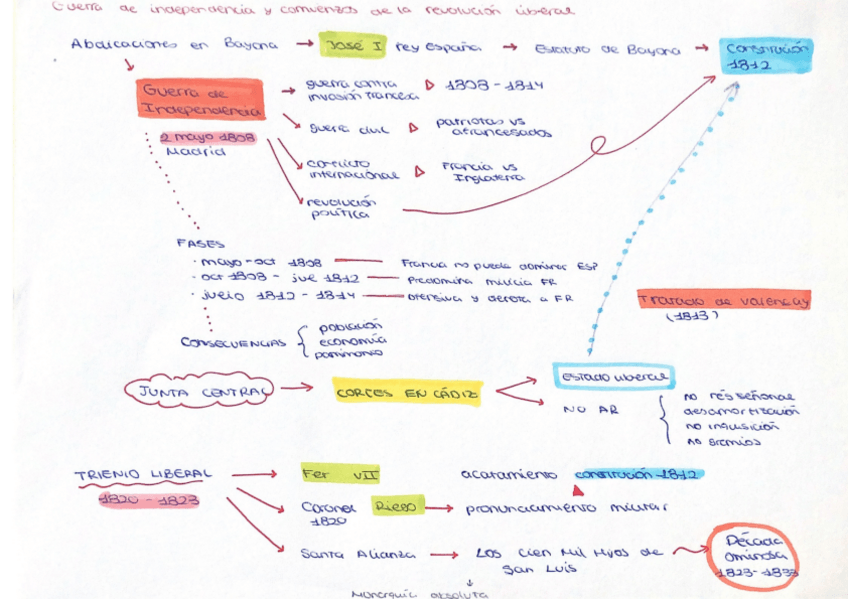 Guerra de independencia y comienzos de la revolución liberal
Abdicaciones en Bayona → José I rey españa → Estatuto de Bayona → Constitución
1812
Guerra de
Independencia
2 mayo 1808
Madrid
guerra contra
invasión francesa ▷ 1808 - 1814
guerra civil ▷ patriotas vs
afrancesados
conflicto
internacional ▷ Francia vs
Inglaterra
revolución
política
FASES
· mayo-oct 1808 — Francia no puede dominar ESP
· oct 1808 - jul 1812 — Predomina milicia FR
· julio 1812 - 1814 — ofensiva y derrota a FR
Tratado de Valençay
(1813)
CONSECUENCIAS { población
economía
patrimonio
JUNTA CENTRAL → CORTES EN CÁDIZ
Estado liberal
NO AR { no rés señorial
desamortización
no inquisición
no gremios
TRIENIO LIBERAL → Fer VII acatamiento constitución 1812
1820 - 1823
Coronel Riego → pronunciamiento militar
1820
Santa Alianza → Los Cien Mil Hijos de
San Luis
Década
ominosa
1823-1833
↓
Monarquía absoluta